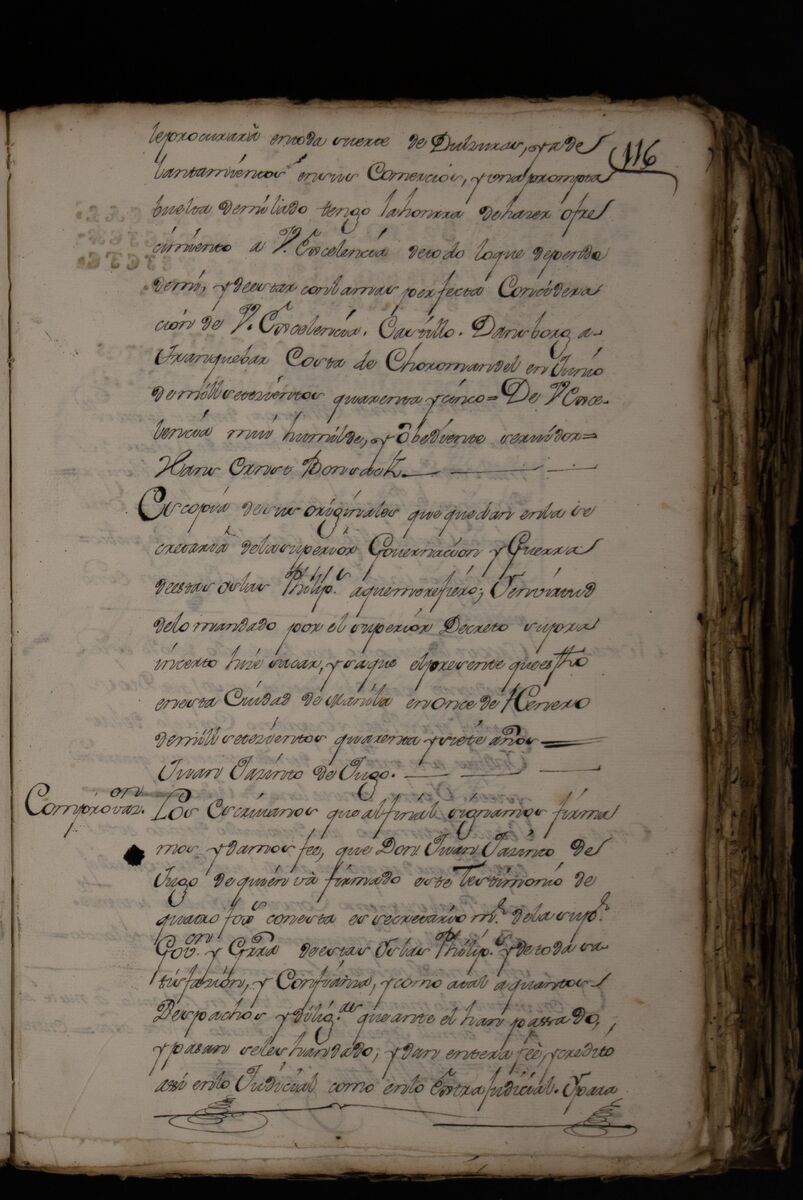 116
le procurarà en toda suerte de Dulzuras, y ade
lantamientos en sus Comercios, y una prompta
buelta de mi lado tengo la honrra de hazer ofre
cimiento a V. Excelencia de todo lo que depende
de mi, y de estar con la mas perfecta Concidera
ción de V. Excelencia. Castillo. Dansborg a
Tranquebar Costa de Choromandel en Junio
de mill setezientos quarenta y cinco = De V. Exce
lencia mui humilde, y obediente servidor =
Hans Ernst Bonsack.
Es copia de sus originales que quedan en la se
cretaria de la superior Governacion y Guerra
de estas Yslas Philip.s a que me refiero; Y en virtud
de lo mandado por el superior Decreto supra
incerto hize sacar, y saque el presente que es fho
en esta Ciudad de Manila en onze de Henero
de mill setezientos quarenta y siete años
Juan Jazinto de Jugo.
Comprovaz.on Los Escrivanos que al final signamos firma
mos y damos fee, que Don Juan Jazinto de
Jugo de quien và firmado este Testimonio de
quatro fox.s con esta es secretario m.r de la sup.r
Gov.on y Grrâ de estas Yslas Philip.s y de toda sa
tisfazion, y Confianza, y como a tal a quantos
Despachos y dilig.as que ante el han passado,
y pasan se les han dado, y dan entera fee, y credito
assi en lo Judicial como en lo Extra judicial. Y para